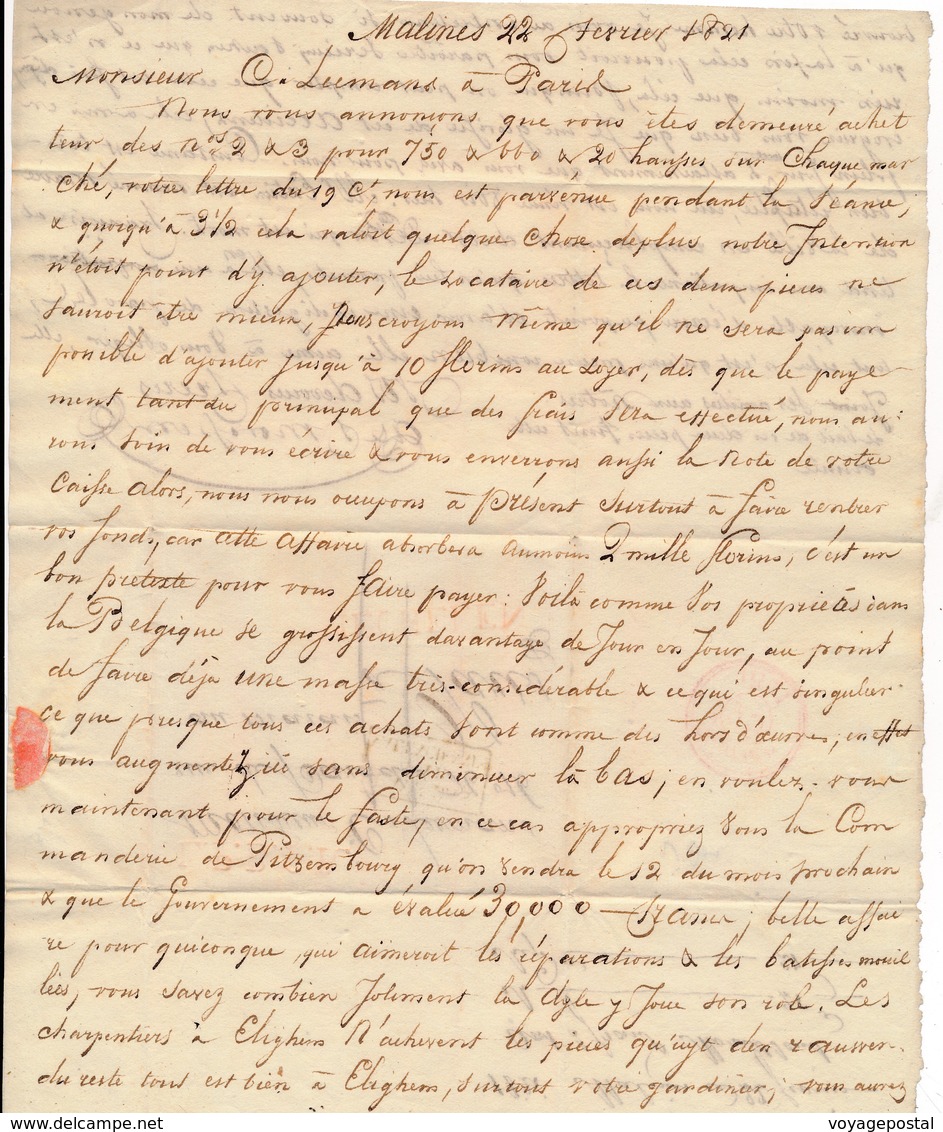 Malines 22 fevrier 1821
Monsieur C. Leemans à Paris
Nous vous annonçons que vous êtes demeuré achet
teur, des nos 2 & 3 pour 750 & 660 & 20 hausses sur Chaque mar
ché, votre lettre du 19 Ct, nous est parvenue pendant la Séance,
& quoiqu'à 3 1/2 cela valoit quelque chose deplus notre Intention
n'étoit point d'y ajouter, le Locataire de ces deux pieces ne
sauroit etre mieux, nous croyons même qu'il ne sera pas im
possible d'ajouter jusqu'à 10 florins au Loyer, dès que le paye
ment tant du principal que des frais sera effectué, nous au=
rons soin de vous écrire & vous enverrons aussi la Note de votre
Caisse alors, nous nous occupons à présent surtout à faire rentrer
vos fonds, car cette affaire absorbera aumoins 2 mille florins, c'est un
bon pretexte pour vous faire payer: Voilà comme Vos propriétés dans
la Belgique se grossissent davantage de Jour en Jour, au point
de faire déjà une masse très-considérable & ce qui est singulier
ce que presque tous ces achats sont comme des hors d'œuvres, en effet
vous augmentez ici sans diminuer là bas; en voulez-vous
maintenant pour le faste, en ce cas appropriez Vous la Com
manderie de Pitzembourg qu'on vendra le 12 du mois prochain
& que le Gouvernement a évalué 30,000 francs; belle affai
re pour quiconque, qui aimeroit les réparations & les batisses mouil
lées, vous savez combien Joliment la dyle y Joue son role. Les
charpentiers à Elighem N'achevent les pieces qu'uyt den rauwen.
du reste tout est bien à Elighem, surtout votre jardinier, vous aurez
voyagepostal